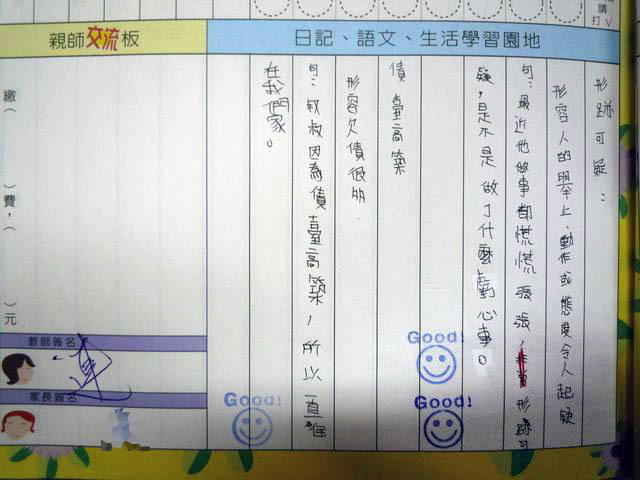 請
打√
親師交流板
日記、語文、生活學習園地
形跡可疑：
形容人的舉止、動作或態度令人起疑
句：最近他做事都慌慌張張，非常形跡可
疑，是不是做了什麼虧心事。
債臺高築
形容欠債很多.
句：叔叔因為債臺高築，所以一直住
在我們家。
繳（　　）費，（　　）元
教師簽名
家長簽名
Good!
Good!
Good!